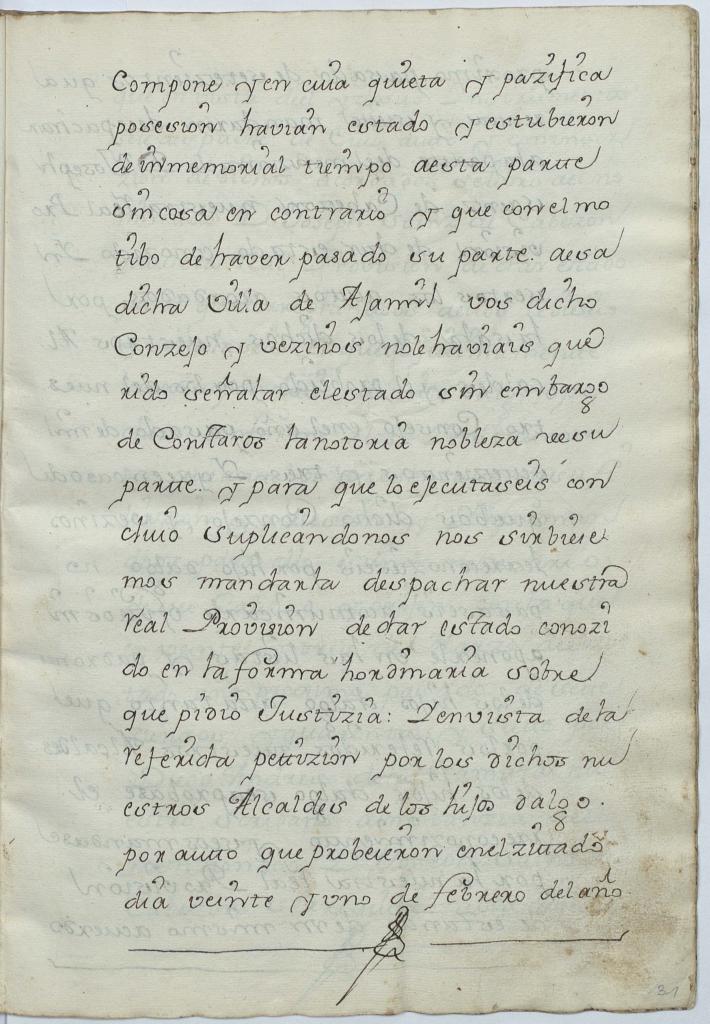 Compone y en cuia quieta y pazifica
posesion havian estado y estubieron
de inmemorial tiempo a esta partte
sin cosa en contrario y que con el mo
tibo de haver pasado su parte. a esa
dicha villa de Ajamil vos dicho
Conzejo y vezinos no le haviais que
rido señalar el estado sin embargo
de Consttaros la notoria nobleza de su
partte. y para que lo ejecutaseis con
cluio suplicandonos nos sirbiese
mos mandarla despachar nuestra
real Provision de dar estado conozi
do en la forma hordinaria sobre
que pidio Justizia: Y en vista de la
referida pettizion por los dichos nu
estros Alcaldes de los hijos dalgo.
por autto que probeieron en el zittado
dia veinte y uno de febrero del año
31